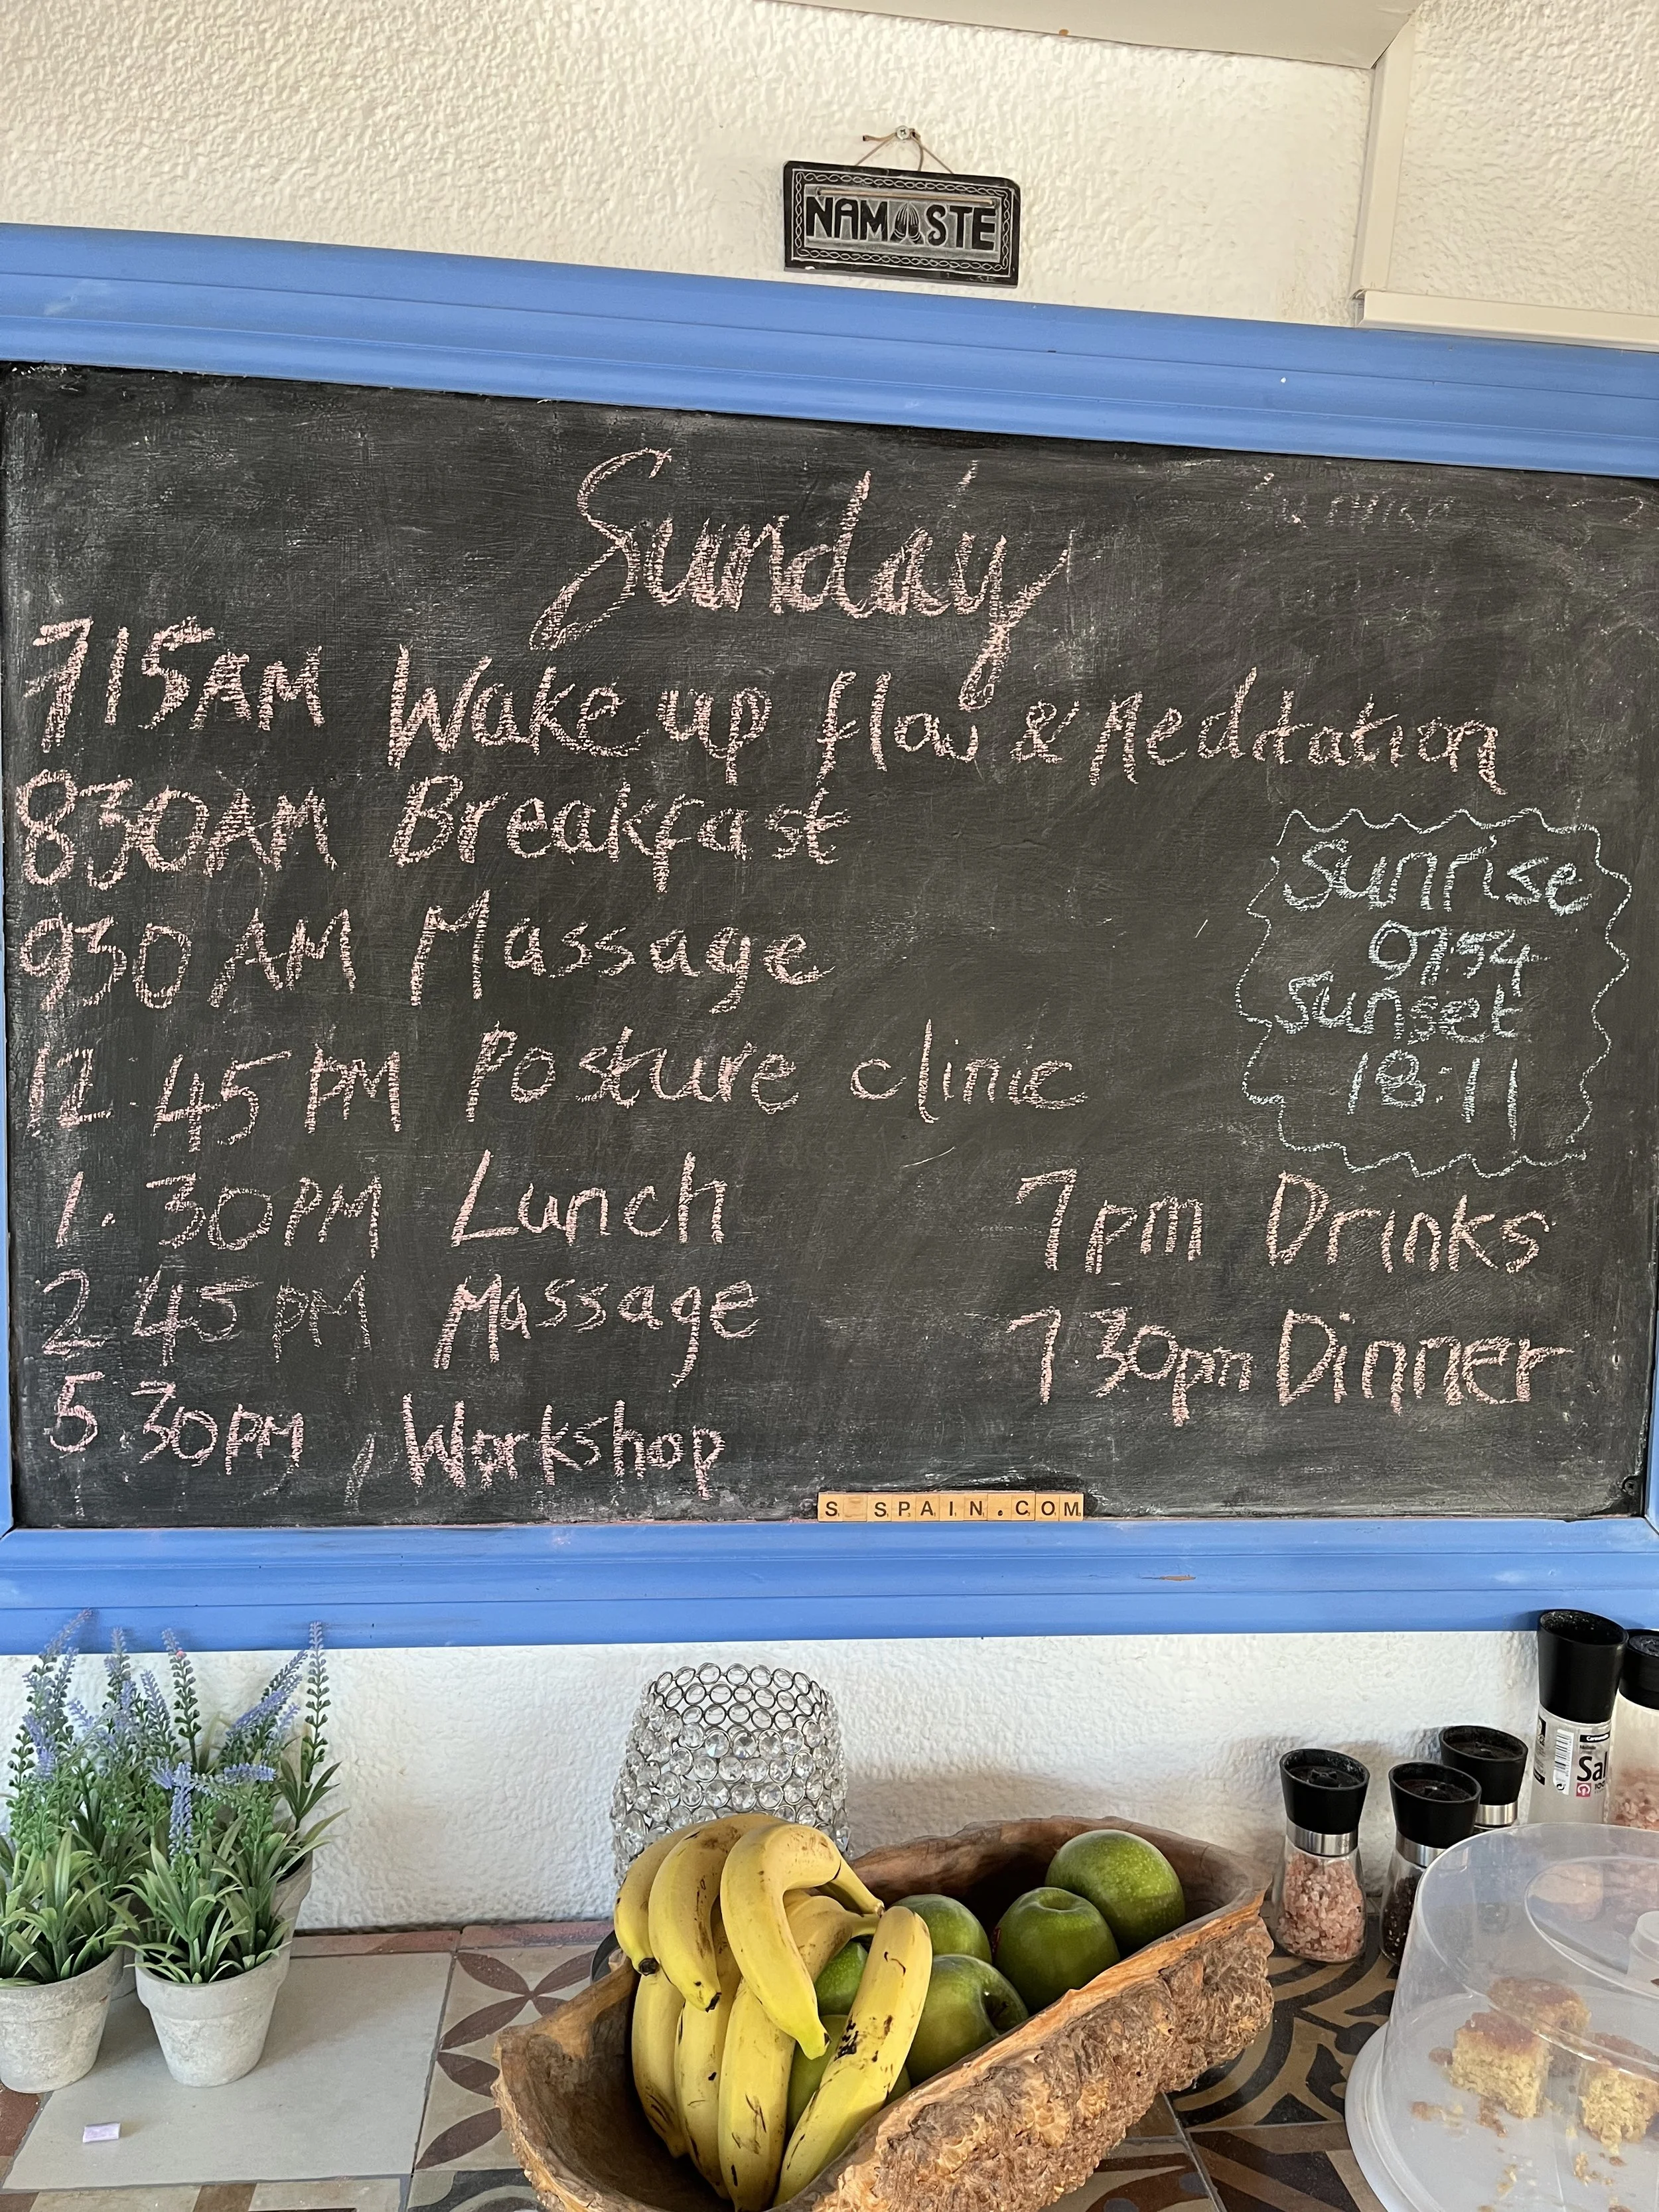 NAMASTE
Sunday
715AM Wake up flow & Meditation
830AM Breakfast
930 AM Massage
12.45 PM Posture clinic
1.30PM Lunch
2.45 PM Massage
5.30PM, Workshop
Sunrise
0754
Sunset
18:11
7pm Drinks
7.30pm Dinner
S SPAIN.COM
Sal